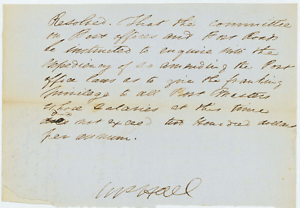 Resolved. That the committee
on Post offices and Post Roads
be instructed to enquire into the
expediency of so amending the Post
office laws as to give the franking
privilege to all Post Masters
whose Salaries at this time
does not exceed two Hundred dollars
per annum.